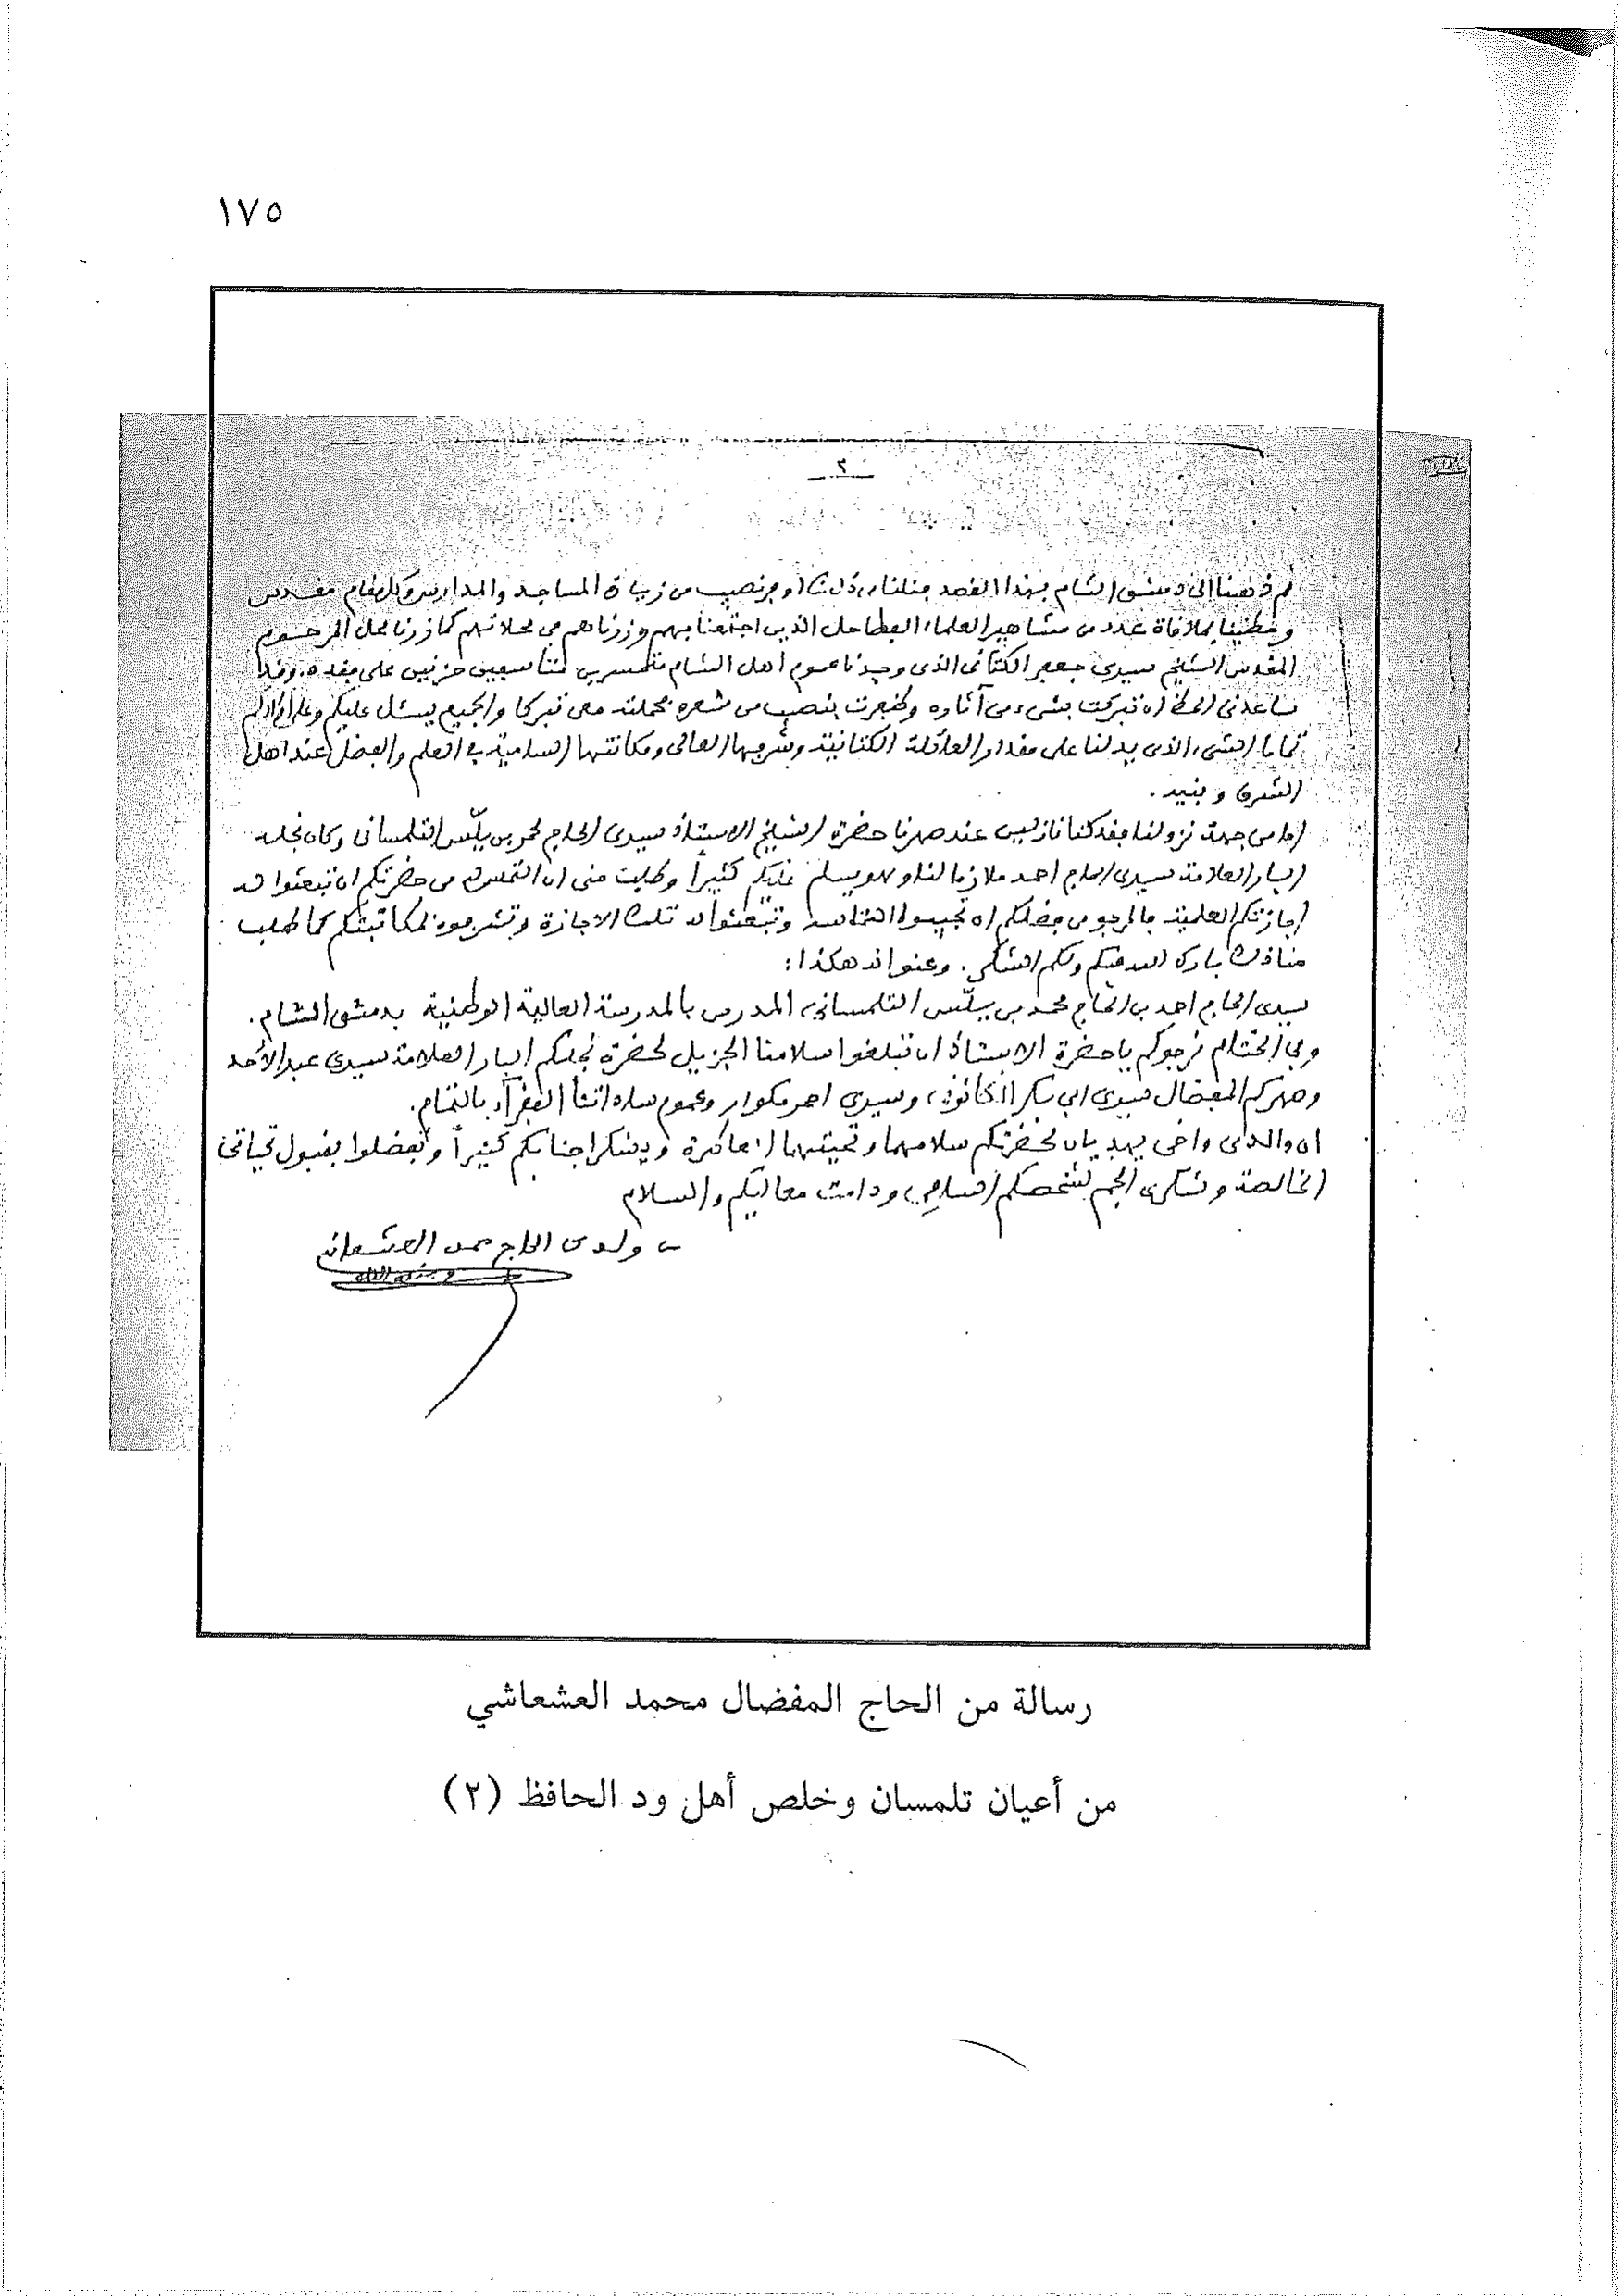 ١٧٥
ـ ٢ ـ
ثم ذهبنا إلى دمشق الشام بهذا القصد فنلنا أوفر نصيب من زيارة المساجد والمدارس وكل مقام مقدس
وحظينا بملاقاة عدد من مشاهير العلماء الفطاحل الذين اجتمعنا بهم وزرناهم في محلاتهم كما زرنا محل المرحوم
المقدس الشيخ سيدي جعفر الكتاني الذي وجدنا عموم أهل الشام متحسرين متأسفين حزنين على فقده. وقد
ساعدني الحظ ان تبركت بشيء من آثاره وظفرت بنصيب من شعره فحملته معي تبركا والجميع يسئل عليكم وعلى احوالكم
تماما الشيء الذي يدلنا على مقدار العائلة الكتانية وشرفها العالي ومكانتها السامية في العلم والفضل عند اهل
الشرق وبنيه.
اما من جهة نزولنا فقد كنا نازلين عند صهرنا حضرة الشيخ الاستاذ سيدي الحاج محمد بن يلّس التلمساني وكان نجله
البار العلامة سيدي الحاج احمد ملازما لنا وهو يسلم عليكم كثيراً وطلبت مني ان التمس من حضرتكم ان تبعثوا له
اجازتكم العلمية فالمرجو من فضلكم ان تجيبوا التماسه وتبعثوا له تلك الاجازة وتشرفوه بمكاتبتكم كما طلب
منا ذلك بارك الله فيكم ولكم الشكر. وعنوانه هكذا:
سيدي الحاج احمد بن الحاج محمد بن يلّس التلمساني المدرس بالمدرسة العالية الوطنية بدمشق الشام.
وفي الختام نرجوكم يا حضرة الاستاذ ان تبلغوا سلامنا الجزيل لحضرة نجلكم البار العلامة سيدي عبد الأحد
وصهركم المفضال سيدي ابي بكر التطواني وسيدي احمد مكوار وعموم ساداتنا الفقرآء بالتمام.
ان والدي واخي يهديان لحضرتكم سلامهما وتحيتهما العاطرة ويشكرا جنابكم كثيراً وتفضلوا بقبول تحياتي
الخالصة وشكري الجم لشخصكم السامي ودامت معاليكم والسلام
من ولدكم الحاج محمد العشعاشي
رسالة من الحاج المفضال محمد العشعاشي
من أعيان تلمسان وخلص أهل ود الحافظ (٢)